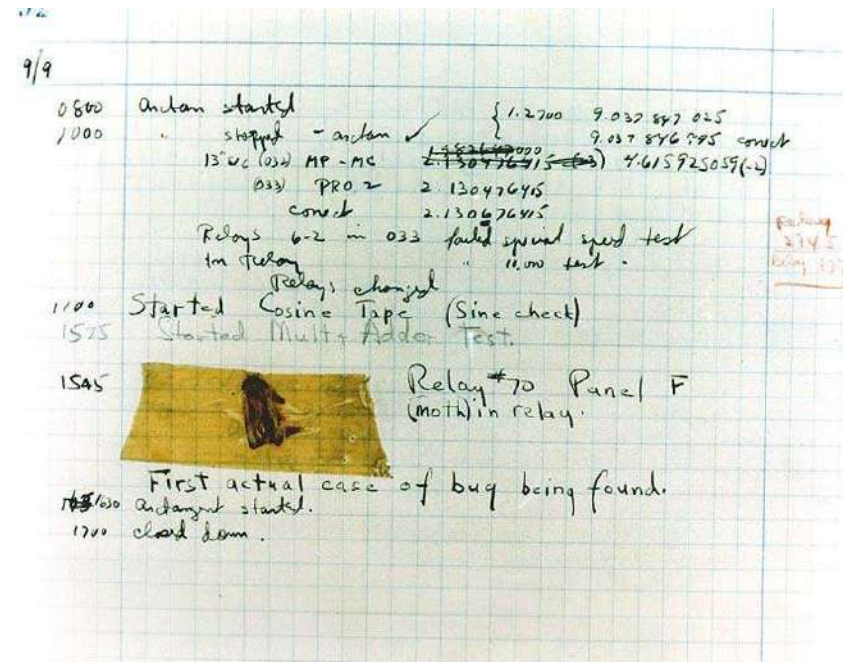 9/9
0800 Antan started { 1.2700 9.037 847 025
1000 " stopped - antan ✓ 9.037 846 795 correct
13"uc (032) MP - MC 2.130476415 (-3) 4.615925059(-2)
(033) PRO 2 2.130476415
correct 2.130676415
Relays 6-2 in 033 failed special speed test
In Relay " 10,000 test.
Relays changed
1100 Started Cosine Tape (Sine check)
1525 Started Mult+Adder Test.
1545 Relay #70 Panel F
(moth) in relay.
First actual case of bug being found.
1630 antangent started.
1700 closed down.
Relay
2145
Relay